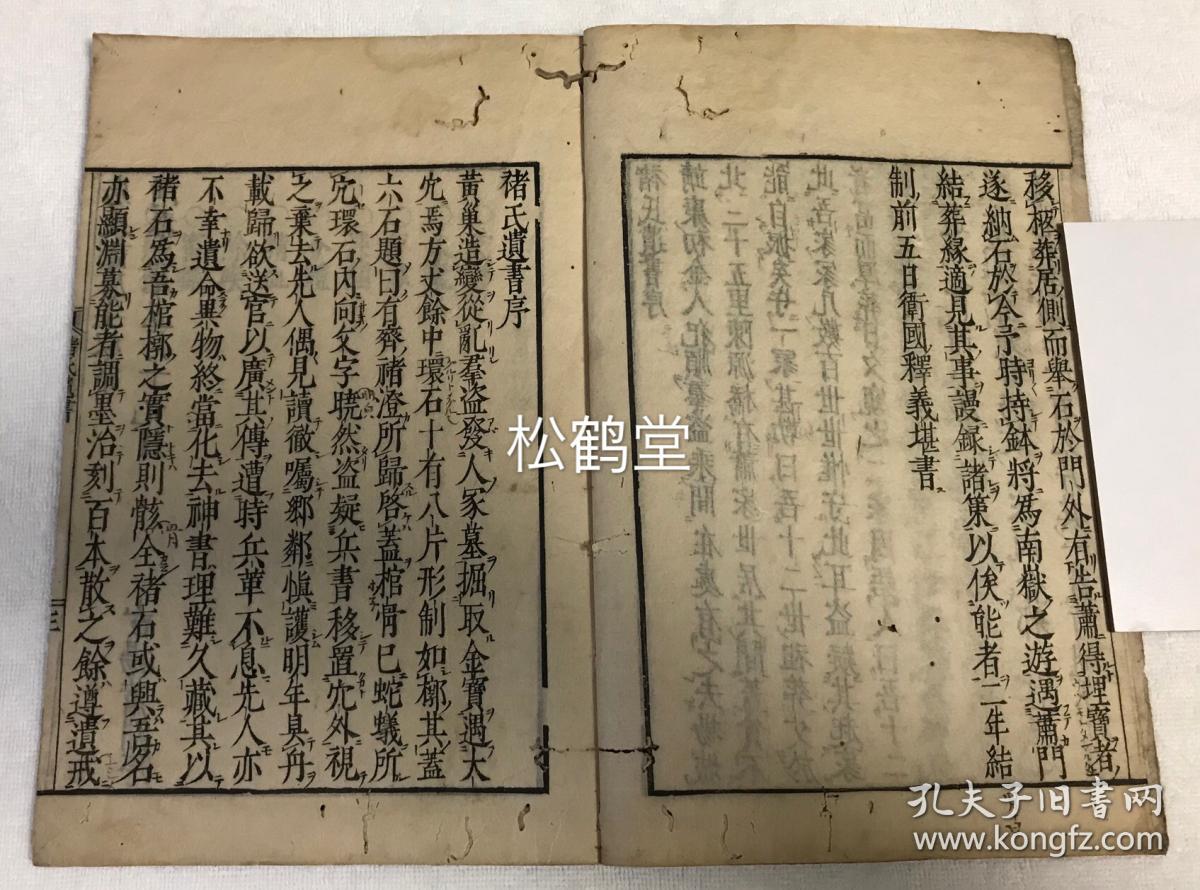 移柩葬居側而舉石於門外有告蕭得埋寶者
遂納石於令予時持鉢將爲南嶽之遊遇蕭門
結葬緣適見其事謾録諸策以俟能者二年結
制前五日衛國釋義堪書
褚氏遺書序
黃巢造變從亂羣盜發人冢墓掘取金寶遇大
穴焉方丈餘中環石十有八片形制如槨其蓋
六石題曰有齊褚澄所歸啓蓋棺骨已蛇蟻所
穴環石內向文字曉然盜疑兵書移置穴外視
之棄去先人偶見讀徹囑鄉鄰愼護明年具舟
載歸欲送官以廣其傳遭時兵革不息先人亦
不幸遺命異物終當化去神書理難久藏其以
褚石爲吾棺槨之實隱則骸全褚石或興吾名
亦顯淵募能者調墨治刻百本散之餘遵遺戒
褚氏遺書
三
松鹤堂
孔夫子旧书网
www.kongfz.com